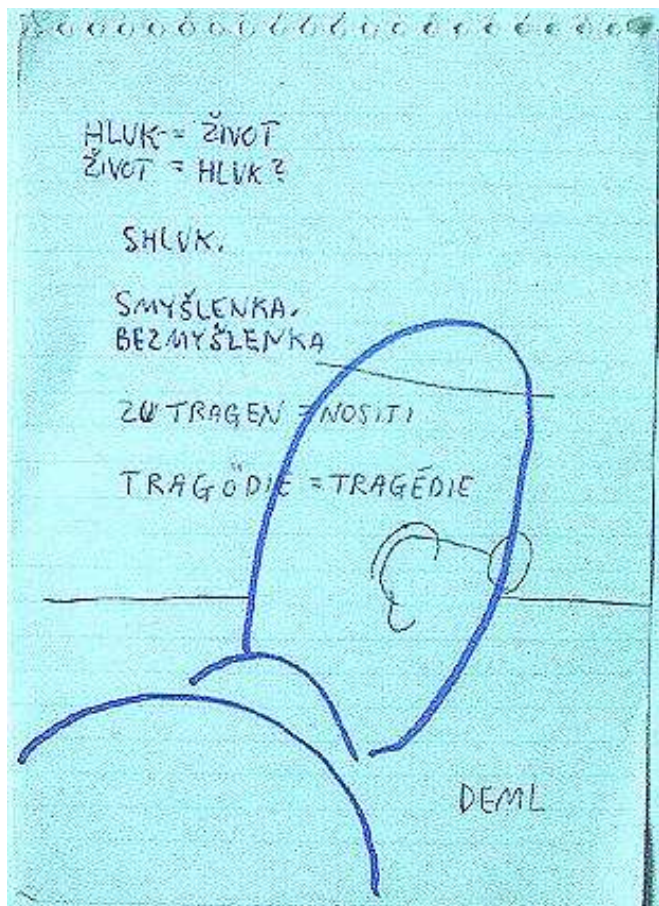 HLUK = ŽIVOT
ŽIVOT = HLUK?
SHLUK.
SMYŠLENKA.
BEZMYŠLENKA
ZU TRAGEN = NOSITI
TRAGÖDIE = TRAGÉDIE
DEML